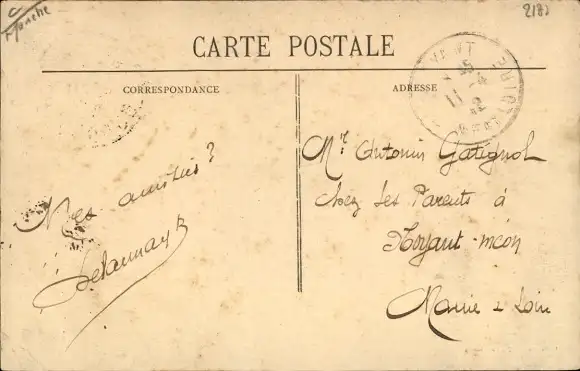 Manche
2182
CARTE POSTALE
CORRESPONDANCE
ADRESSE
Mes amitiés?
Delaunay
Mr. Antonin Gatignol
chez ses Parents à
Noyant-méon
Maine & Loire